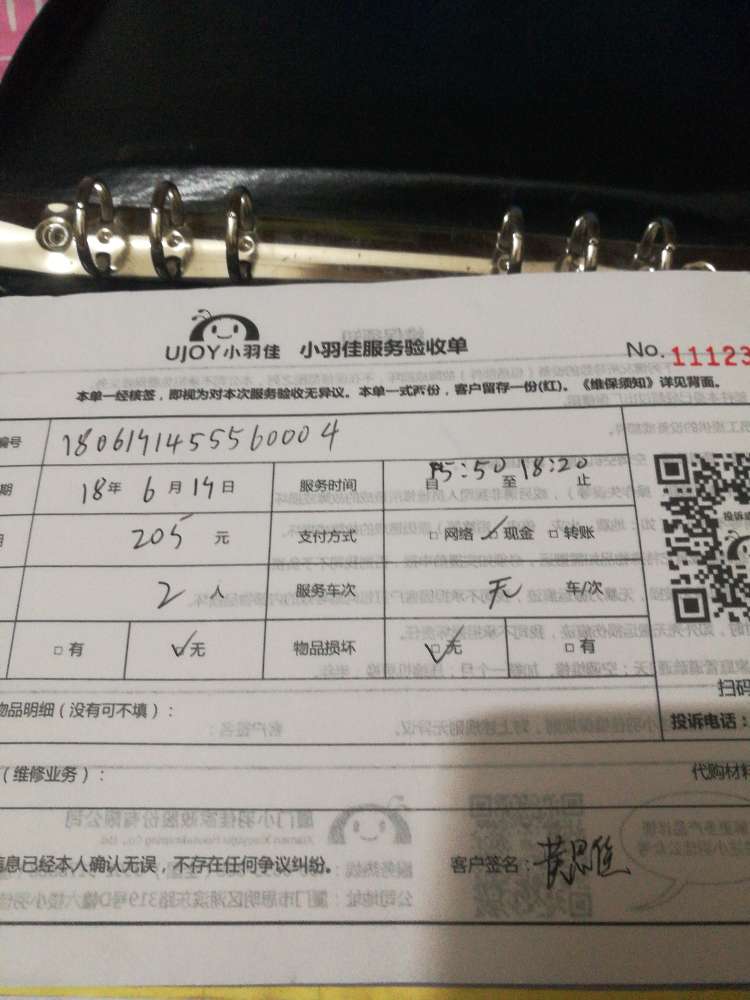 UJOY小羽佳 小羽佳服务验收单 No. 11123
本单一经核签，即视为对本次服务验收无异议。本单一式两份，客户留存一份(红)。《维保须知》详见背面。
编号 1806141455560004
期 18年 6月14日 服务时间 自15:50至18:20止
205元 支付方式 □网络 ☑现金 □转账
2人 服务车次 无 车/次
□有 ☑无 物品损坏 ☑无 □有
扫码
物品明细（没有可不填）： 投诉电话：
（维修业务）： 代购材料
信息已经本人确认无误，不存在任何争议纠纷。 客户签名：